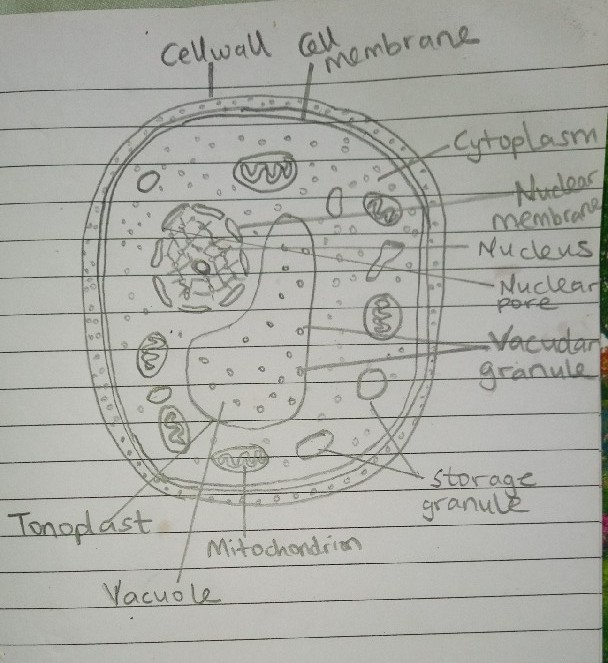 Cellwall
Cell
membrane
Cytoplasm
Nuclear
membrane
Nucleus
Nuclear
pore
Vacuolar
granule
storage
granule
Tonoplast
Mitochondrion
Vacuole